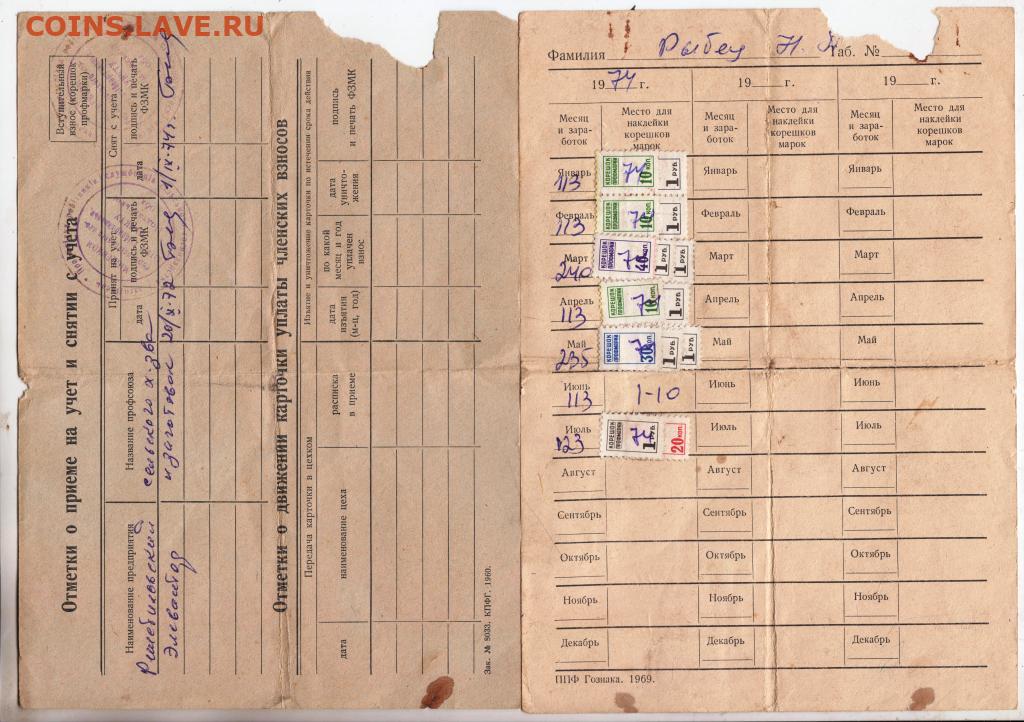 COINS-LAVE.RU
Отметки о приеме на учет и снятии с учета
Вступительный
взнос (корешок
профмарка)
Наименование предприятия
Название профсоюза
Принят на учет
дата
подпись и печать
ФЗМК
Снят с учета
дата
подпись и печать
ФЗМК
Элеватор
сельского х-зва
и заготовок
20/IX-72
1/IX-74г.
Отметки о движении карточки уплаты членских взносов
Передача карточки в цехком
Изъятие и уничтожение карточки по истечении срока действия
дата
наименование цеха
расписка
в приеме
дата
изъятия
(м-ц, год)
по какой
месяц и год
уплачен
взнос
дата
уничто-
жения
подпись
и печать ФЗМК
Зак. № 8033. КПФГ. 1969.
Фамилия Рыбец Н. Таб. №
1974 г. 19 г. 19 г.
Месяц
и зара-
боток
Место для
наклейки
корешков
марок
Месяц
и зара-
боток
Место для
наклейки
корешков
марок
Месяц
и зара-
боток
Место для
наклейки
корешков
марок
Январь 113 КОРЕШОК ПРОФМАРКИ 74 10 КОП. 1 РУБ. Январь Январь
Февраль 113 КОРЕШОК ПРОФМАРКИ 10 КОП. 1 РУБ. Февраль Февраль
Март 240 КОРЕШОК ПРОФМАРКИ 40 КОП. 1 РУБ. 1 РУБ. Март Март
Апрель 113 КОРЕШОК ПРОФМАРКИ 10 КОП. 1 РУБ. Апрель Апрель
Май 235 КОРЕШОК ПРОФМАРКИ 30 КОП. 1 РУБ. 1 РУБ. Май Май
Июнь 113 1-10 Июнь Июнь
Июль 123 КОРЕШОК ПРОФМАРКИ 74 1 РУБ. 20 КОП. Июль Июль
Август Август Август
Сентябрь Сентябрь Сентябрь
Октябрь Октябрь Октябрь
Ноябрь Ноябрь Ноябрь
Декабрь Декабрь Декабрь
ППФ Гознака. 1969.